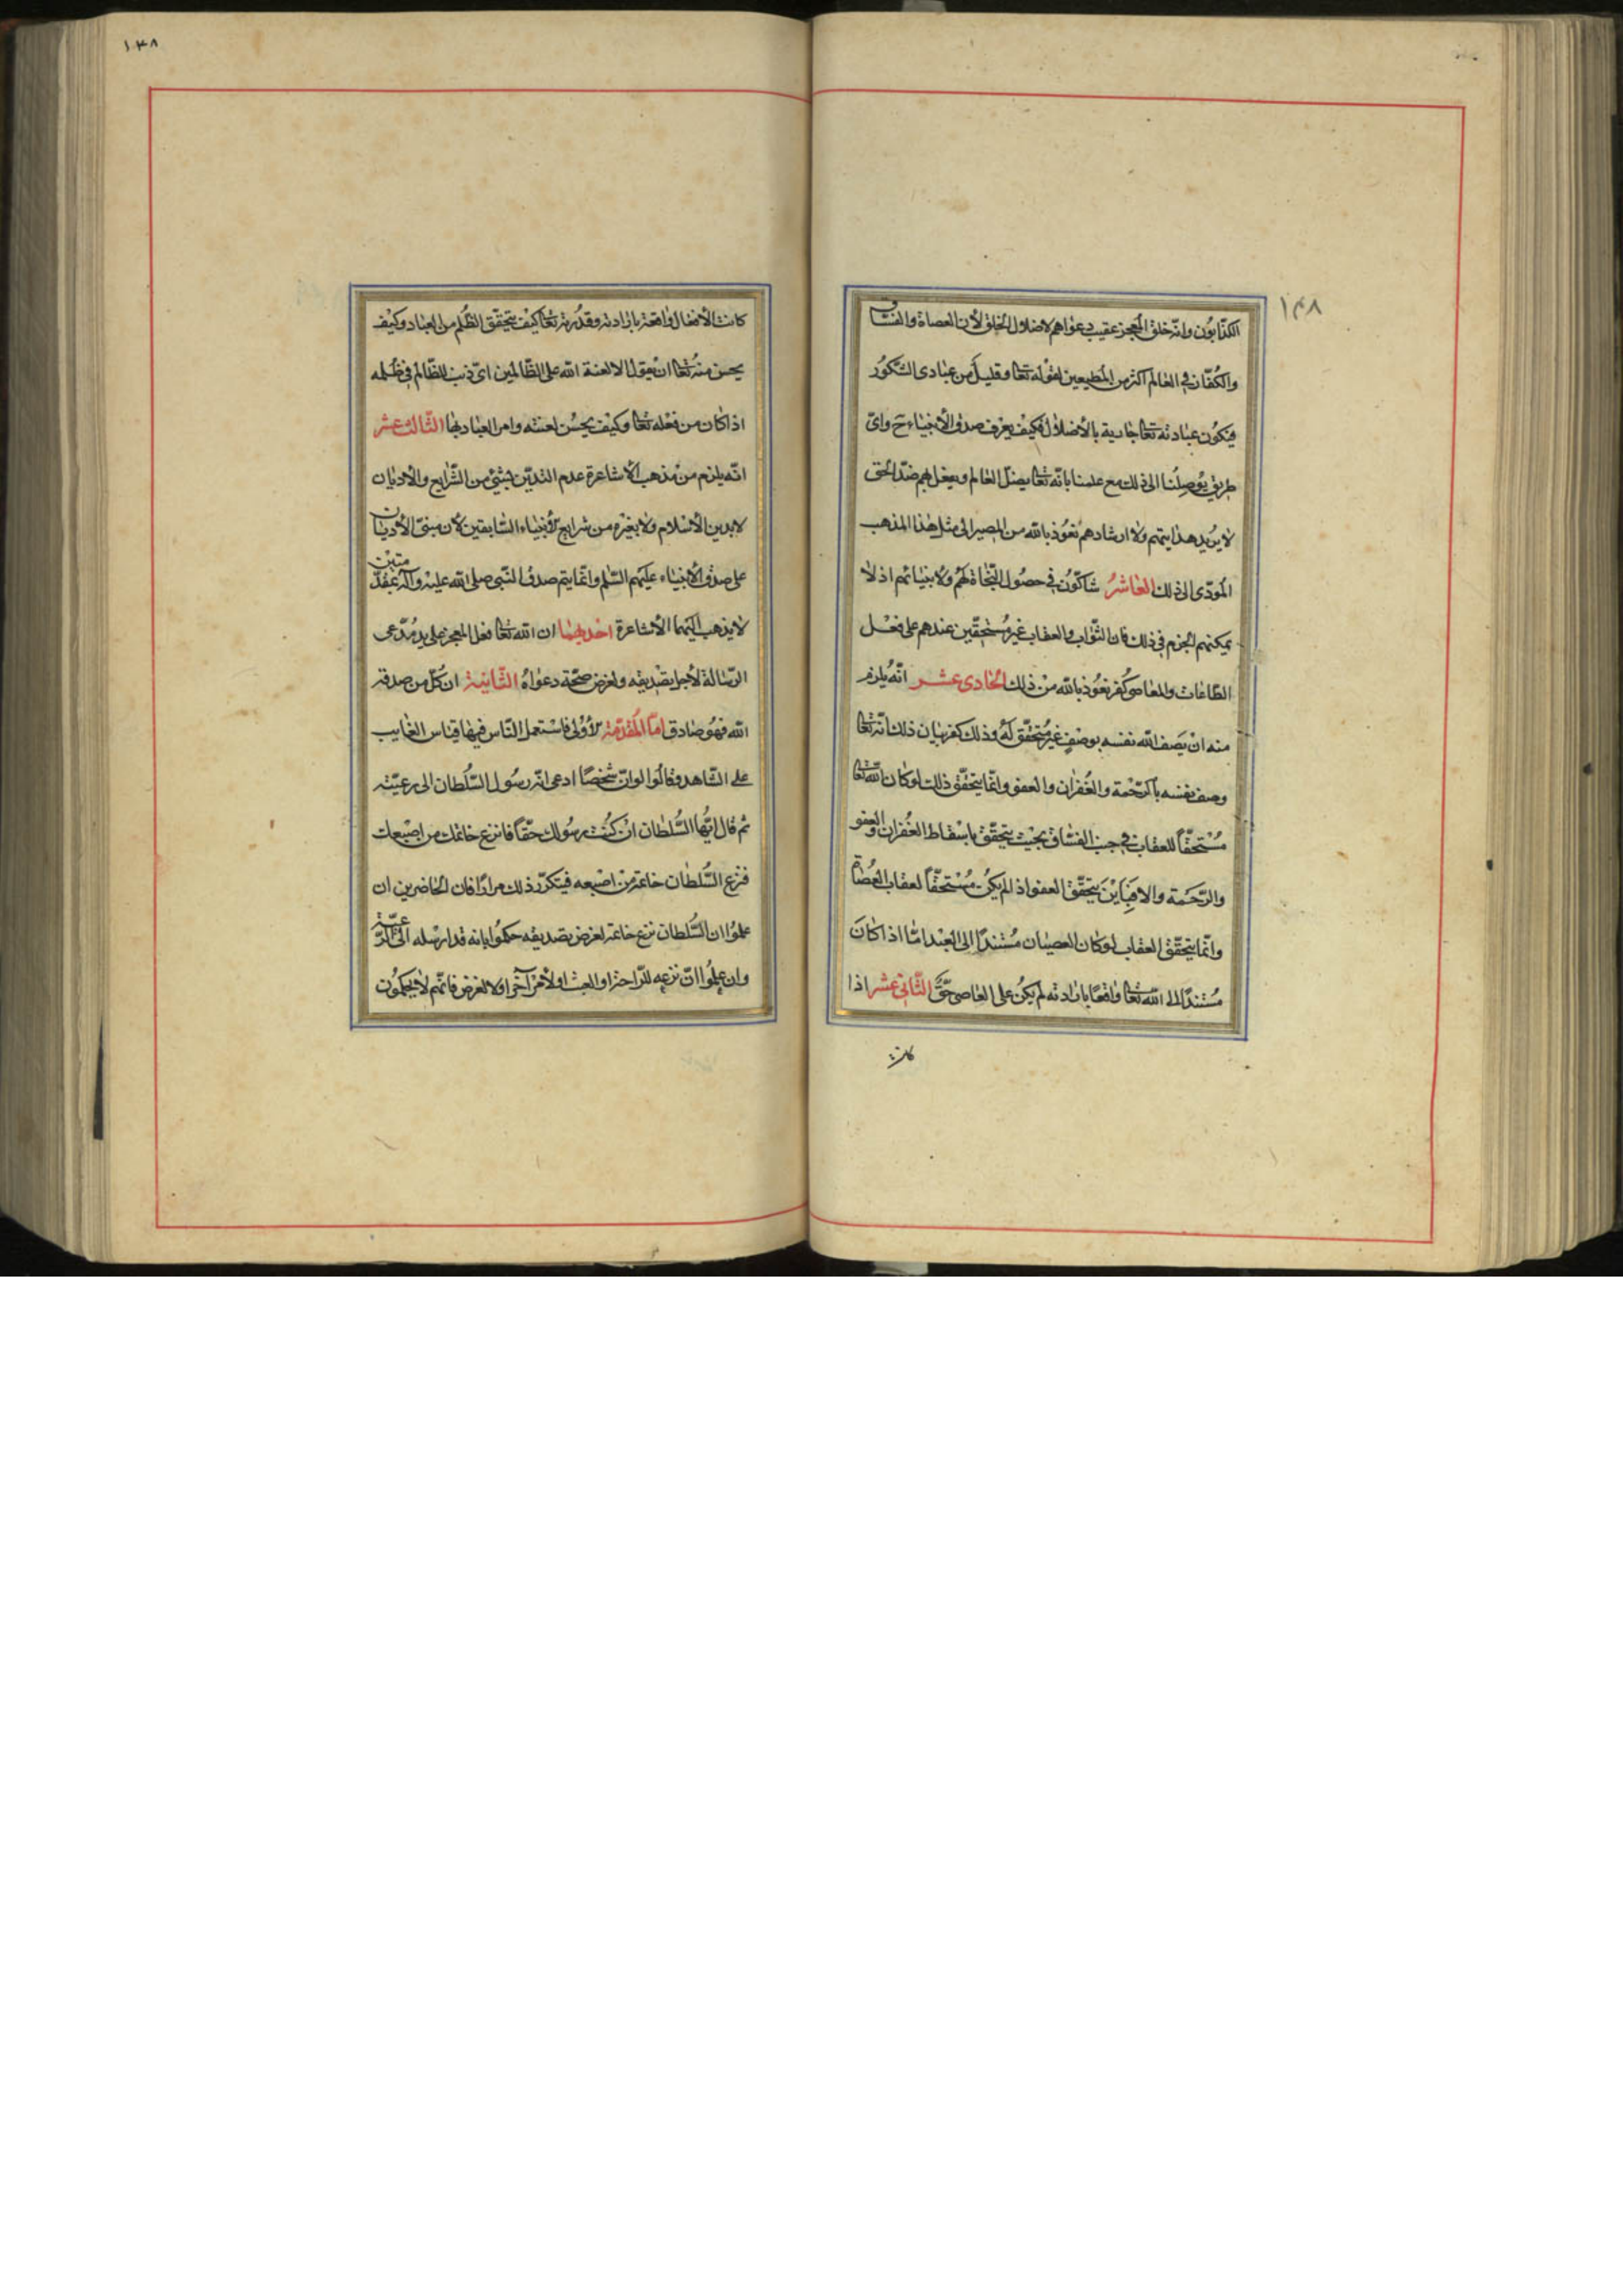 ١٣٨
١٤٨
الكذابون وانه خلق المعجز عقيب دعواهم لاضلال الخلق لأن العصاة والفساق
والكفار في العالم اكثر من المطيعين لقوله تعا وقليل من عبادى الشكور
فيكون عبادته تعا جارية بالأضلال فكيف يعرف صدق الأنبياء ح واى
طريق يوصلنا الى ذلك مع علمنا بانه تعا يضل العالم ويفعل بهم ضد الحق
لا يريد هدايتهم ولا ارشادهم نعوذ بالله من المصير الى مثل هذا المذهب
المودى الى ذلك العاشر شاكون في حصول النجاة لهم ولانبيائهم اذ لا
يمكنهم الجزم في ذلك فان الثواب والعقاب غير مستحقين عندهم على فعل
الطاعات والمعاصى كفر نعوذ بالله من ذلك الحادى عشر انه يلزم
منه ان يصف الله نفسه بوصف غير متحقق له وذلك كفر بيان ذلك انه تعا
وصف نفسه بالرحمة والغفران والعفو وانما يتحقق ذلك لو كان الله تعا
مستحقا للعقاب في جنب الفساق بحيث يتحقق باسقاط الغفران والعفو
والرحمة والا فباين يتحقق العفو اذ لم يكن مستحقا لعقاب العصاة
وانما يتحقق العقاب لو كان العصيان مستندا الى العبد امّا اذا كان
مستندا الى الله تعا واقعا بارادته لم يكن على العاصى حق الثانى عشر اذا
كانت
كانت الأفعال واقعة بارادته وقدرته تعا كيف يتحقق الظلم من العباد وكيف
يحسن منه تعا ان يقول الا لعنة الله على الظالمين اى ذنب للظالم في ظلمه
اذا كان من فعله تعا وكيف يحسن لعنته وامر العباد بها الثالث عشر
انه يلزم من مذهب الاشاعرة عدم التدين بشئ من الشرايع والأديان
لا بدين الأسلام ولا بغيره من شرايع الأنبياء السابقين لأن مبنى الأديان
على صدق الأنبياء عليهم السلم وانما يتم صدق النبى صلى الله عليه وآله بمقدمتين
لا يذهب اليهما الأشاعرة احديهما ان الله تعا فعل المعجز على يد مدعى
الرسالة لأجل تصديقه ولغرض صحة دعواه الثانية ان كل من صدقه
الله فهو صادق اما المقدمة الأولى فاستعمل الناس فيها قياس الغايب
على الشاهد وقالوا لو ان شخصا ادعى انه رسول السلطان الى رعيته
ثم قال ايها السلطان ان كنت رسولك حقا فانزع خاتمك من اصبعك
فنزع السلطان خاتمه من اصبعه فيتكرر ذلك مرارا فان الحاضرين ان
علموا ان السلطان نزع خاتمه لغرض تصديقه حكموا بانه قد ارسله الى الرعية
وان علموا ان نزعه للراحة او العبث او لأمر آخر او لا لغرض فانهم لا يحكمون